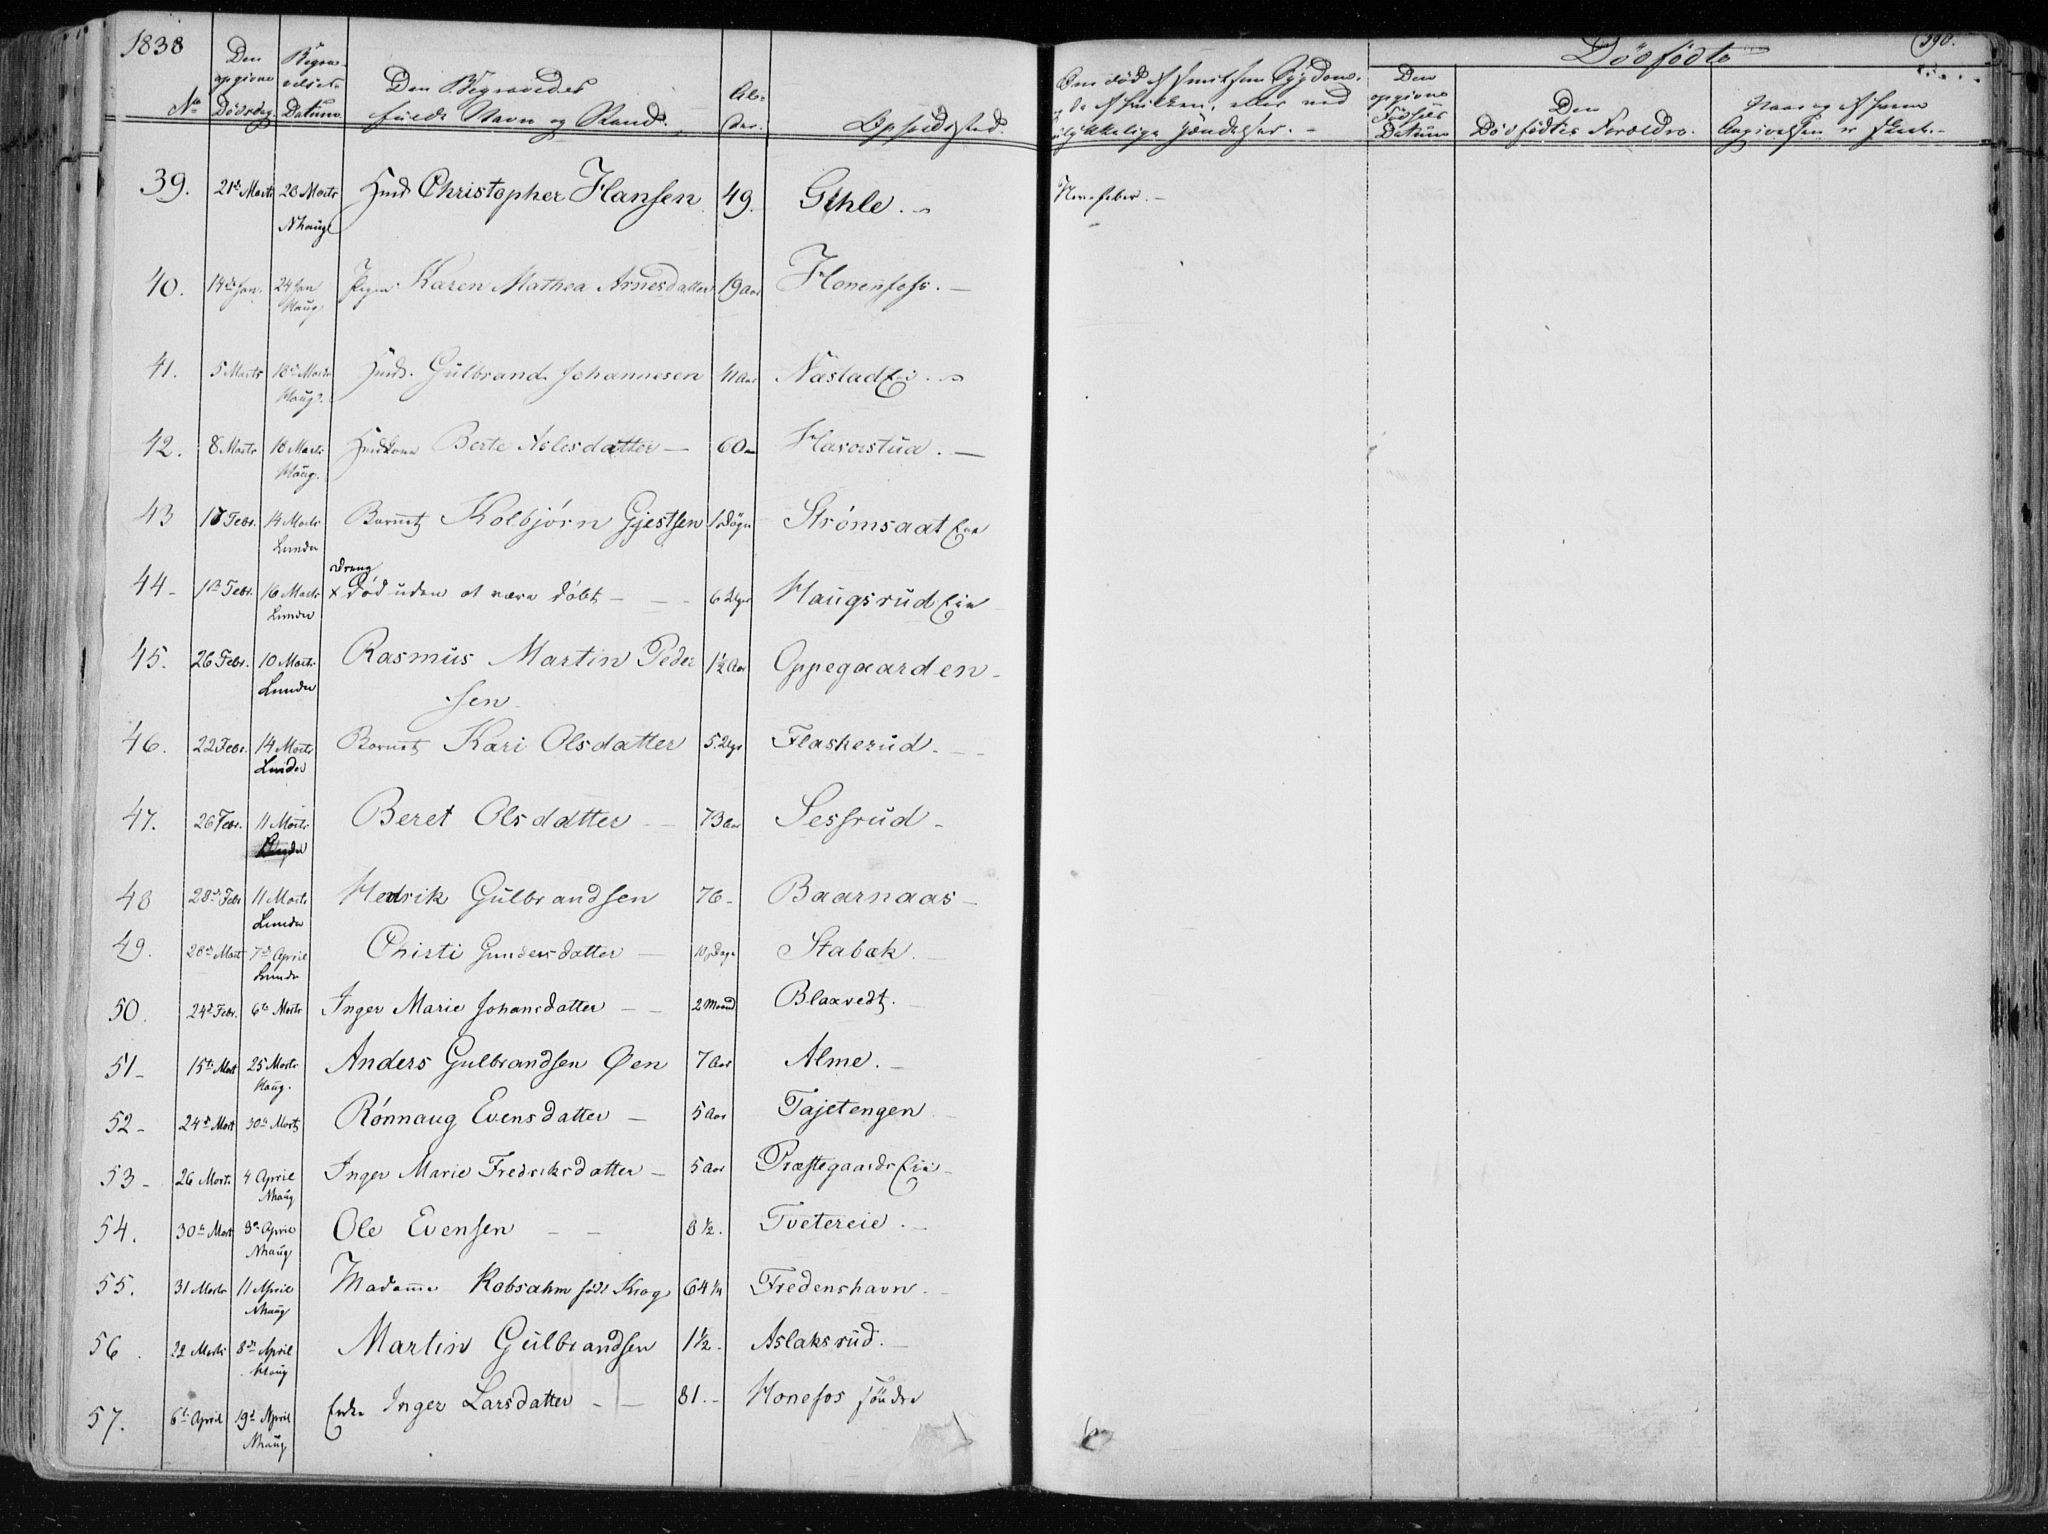 1838
No
Den opgivne Dödsdag
Begravelses Datum
Den Begravedes fulde Navn og Stand.
Alder.
Opholdssted.
Døde af smitsom Sygdom
ulykkelige Hændelser. -
Dødfødte
Den opgivne Fødsels Datum
Den Dødfødtes Forældre.
Angivelsen er skeet. -
390.
39. 21de Marts 28 Marts Nhaug Huusm. Christopher Hansen 49. Gihle. Nervefeber. -
40. 14de Jan. 24 Jan Haug Pigen Karen Mathea Arnesdatter 19 Aar Honenfoss. -
41. 5 Marts 18de Marts Haug. Gulbrand Johannesen 41 Aar Næstad Eie.
42. 8 Marts 18 Marts Haug. Berte Aslesdatter - 60 Haverstua. -
43 17 Febr. 14 Marts Lunder Barnet Kolbjørn Gjestsen 1 Døgn Strømsaat Eie
44 - 1ste Febr. 16 Marts Lunder dreng x død uden at være døbt - - - 6 Dage Haugsrud Eie
45. 26 Febr. 10 Marts Lunder Rasmus Martin Peder
sen. 1½ Aar Oppegaarden -
46. 22 Febr. 14 Marts Lunder Barnet Kari Olsdatter 5 Dage Flaskerud. -
47. 26 Febr. 11 Marts Beret Olsdatter - 73 Aar Sessrud -
48 28de Febr 11 Marts Lunder Hendrik Gulbrandsen 76 - Baarnaas -
49. 28de Mart 7de April Lunder Christi Gundersdatter - 10 Dage Stabæk. -
50. 24de Febr. 6te Marts Inger Marie Johansdatter - - 2 Maaned Blaxvedt. -
51 - 15te Mart 25 Marts Haug. Anders Gulbrandsen Øen 7 Aar Alme. -
52 - 24de Mart 30te Marts Rønnaug Evensdatter - 5 Aar Tajetengen -
53 - 26 Mart. 4 April Nhaug Inger Marie Fredriksdatter - 5 Aar Præstegaards Eie -
54. 30te Mart 9de April Nhaug Ole Evensen - - 8½. Tvetereie. -
55. 31 Marts 11 April Nhaug Madamme Robsahm født Krog 64¼ Fredenshavn. -
56. 22 Marts 8de April Haug Martin Gulbrandsen 1½. Aslaksrud. -
57. 6te April 19de April Nhaug Enke Inger Larsdatter - - 81. - Honefos søndre